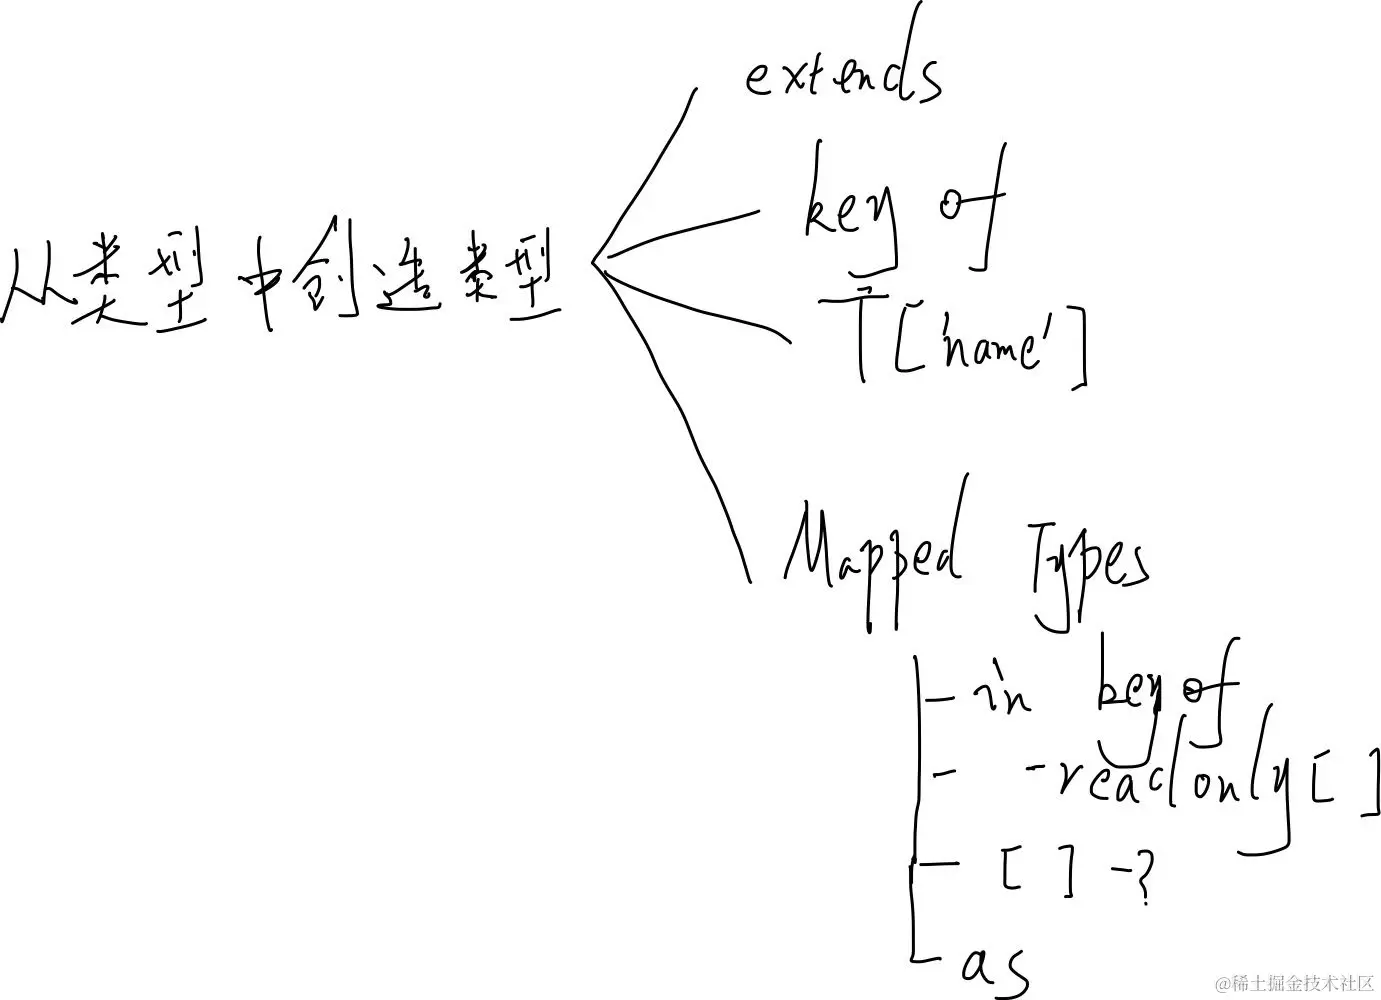 extends
key of
从类型中创造类型
T['name']
Mapped Types
in keyof
-readonly[ ]
[ ]-?
as
@稀土掘金技术社区